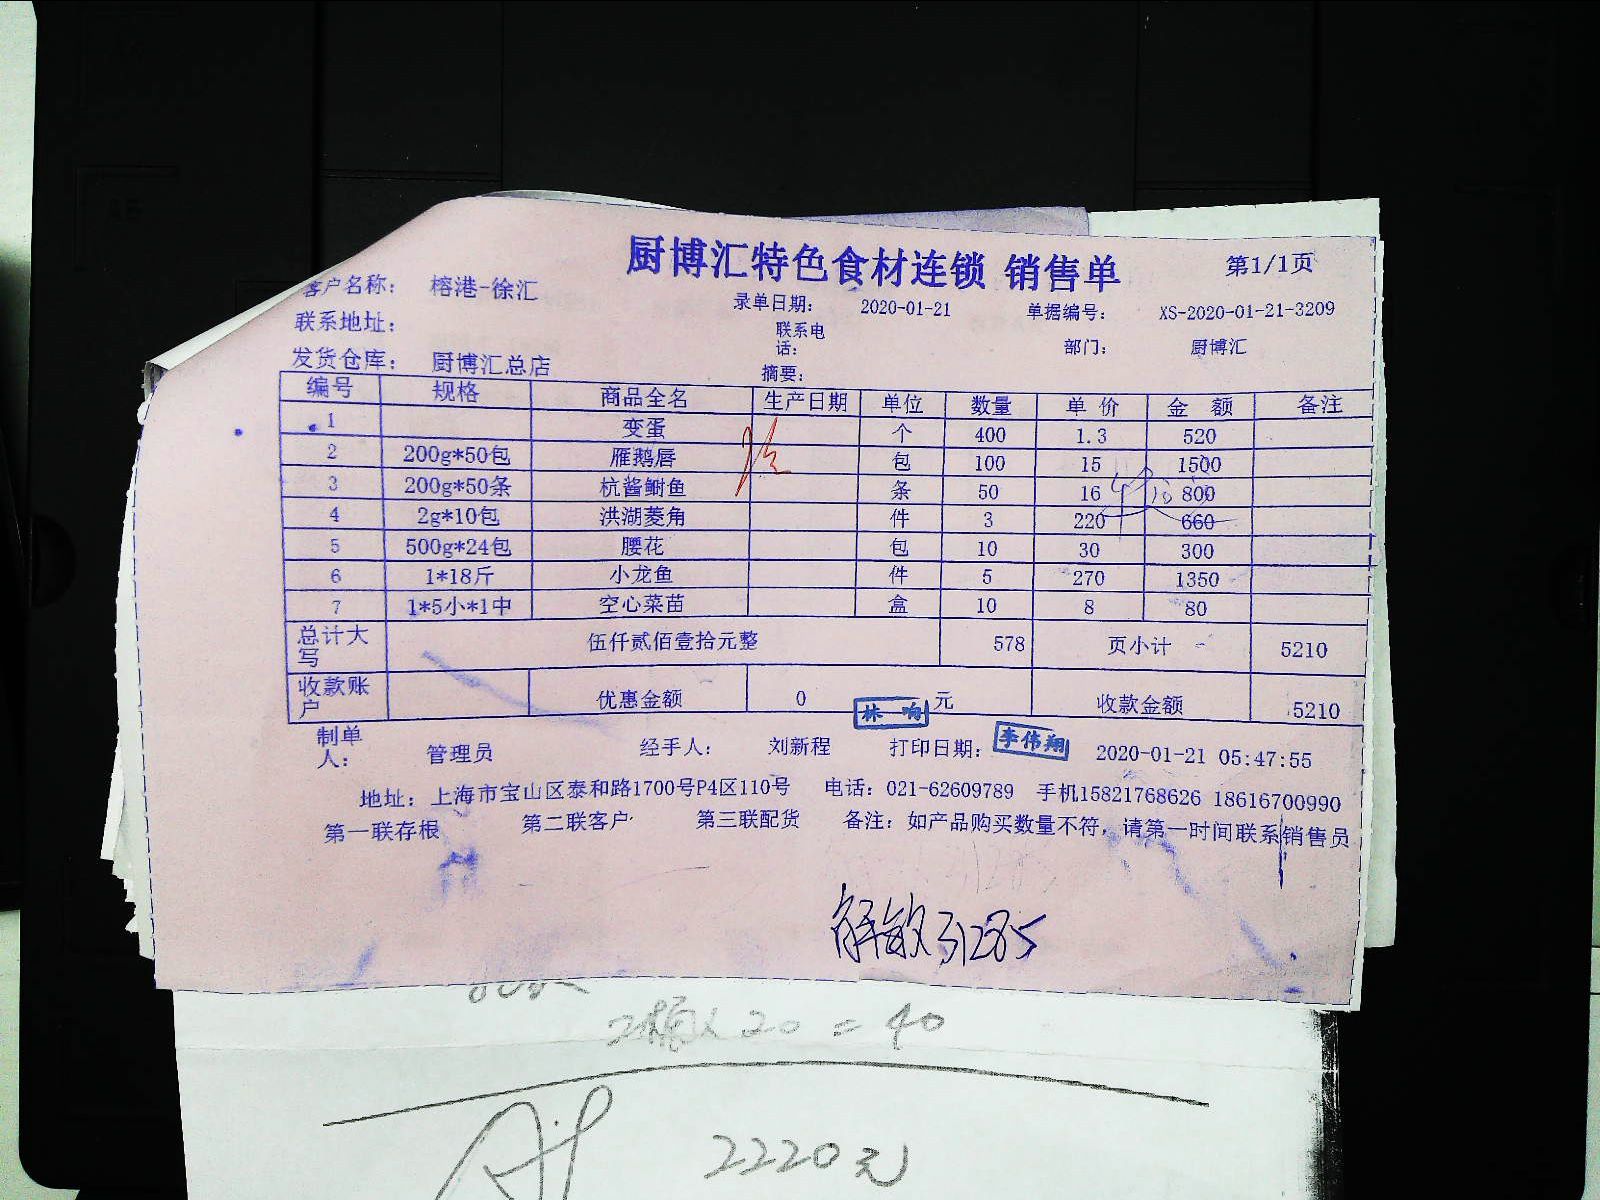 厨博汇特色食材连锁 销售单 第1/1页
客户名称： 榕港-徐汇 录单日期： 2020-01-21 单据编号： XS-2020-01-21-3209
联系地址： 联系电话： 部门： 厨博汇
发货仓库： 厨博汇总店 摘要：
编号 规格 商品全名 生产日期 单位 数量 单 价 金 额 备注
1 变蛋 个 400 1.3 520
2 200g*50包 雁鹅唇 包 100 15 1500
3 200g*50条 杭酱鲥鱼 条 50 16 800
4 2g*10包 洪湖菱角 件 3 220 660
5 500g*24包 腰花 包 10 30 300
6 1*18斤 小龙鱼 件 5 270 1350
7 1*5小*1中 空心菜苗 盒 10 8 80
总计大写 伍仟贰佰壹拾元整 578 页小计 5210
收款账户 优惠金额 0 元 收款金额 5210
林 响
李伟翔
制单人： 管理员 经手人： 刘新程 打印日期： 2020-01-21 05:47:55
地址：上海市宝山区泰和路1700号P4区110号 电话：021-62609789 手机15821768626 18616700990
第一联存根 第二联客户 第三联配货 备注：如产品购买数量不符，请第一时间联系销售员
20 = 40
2220元